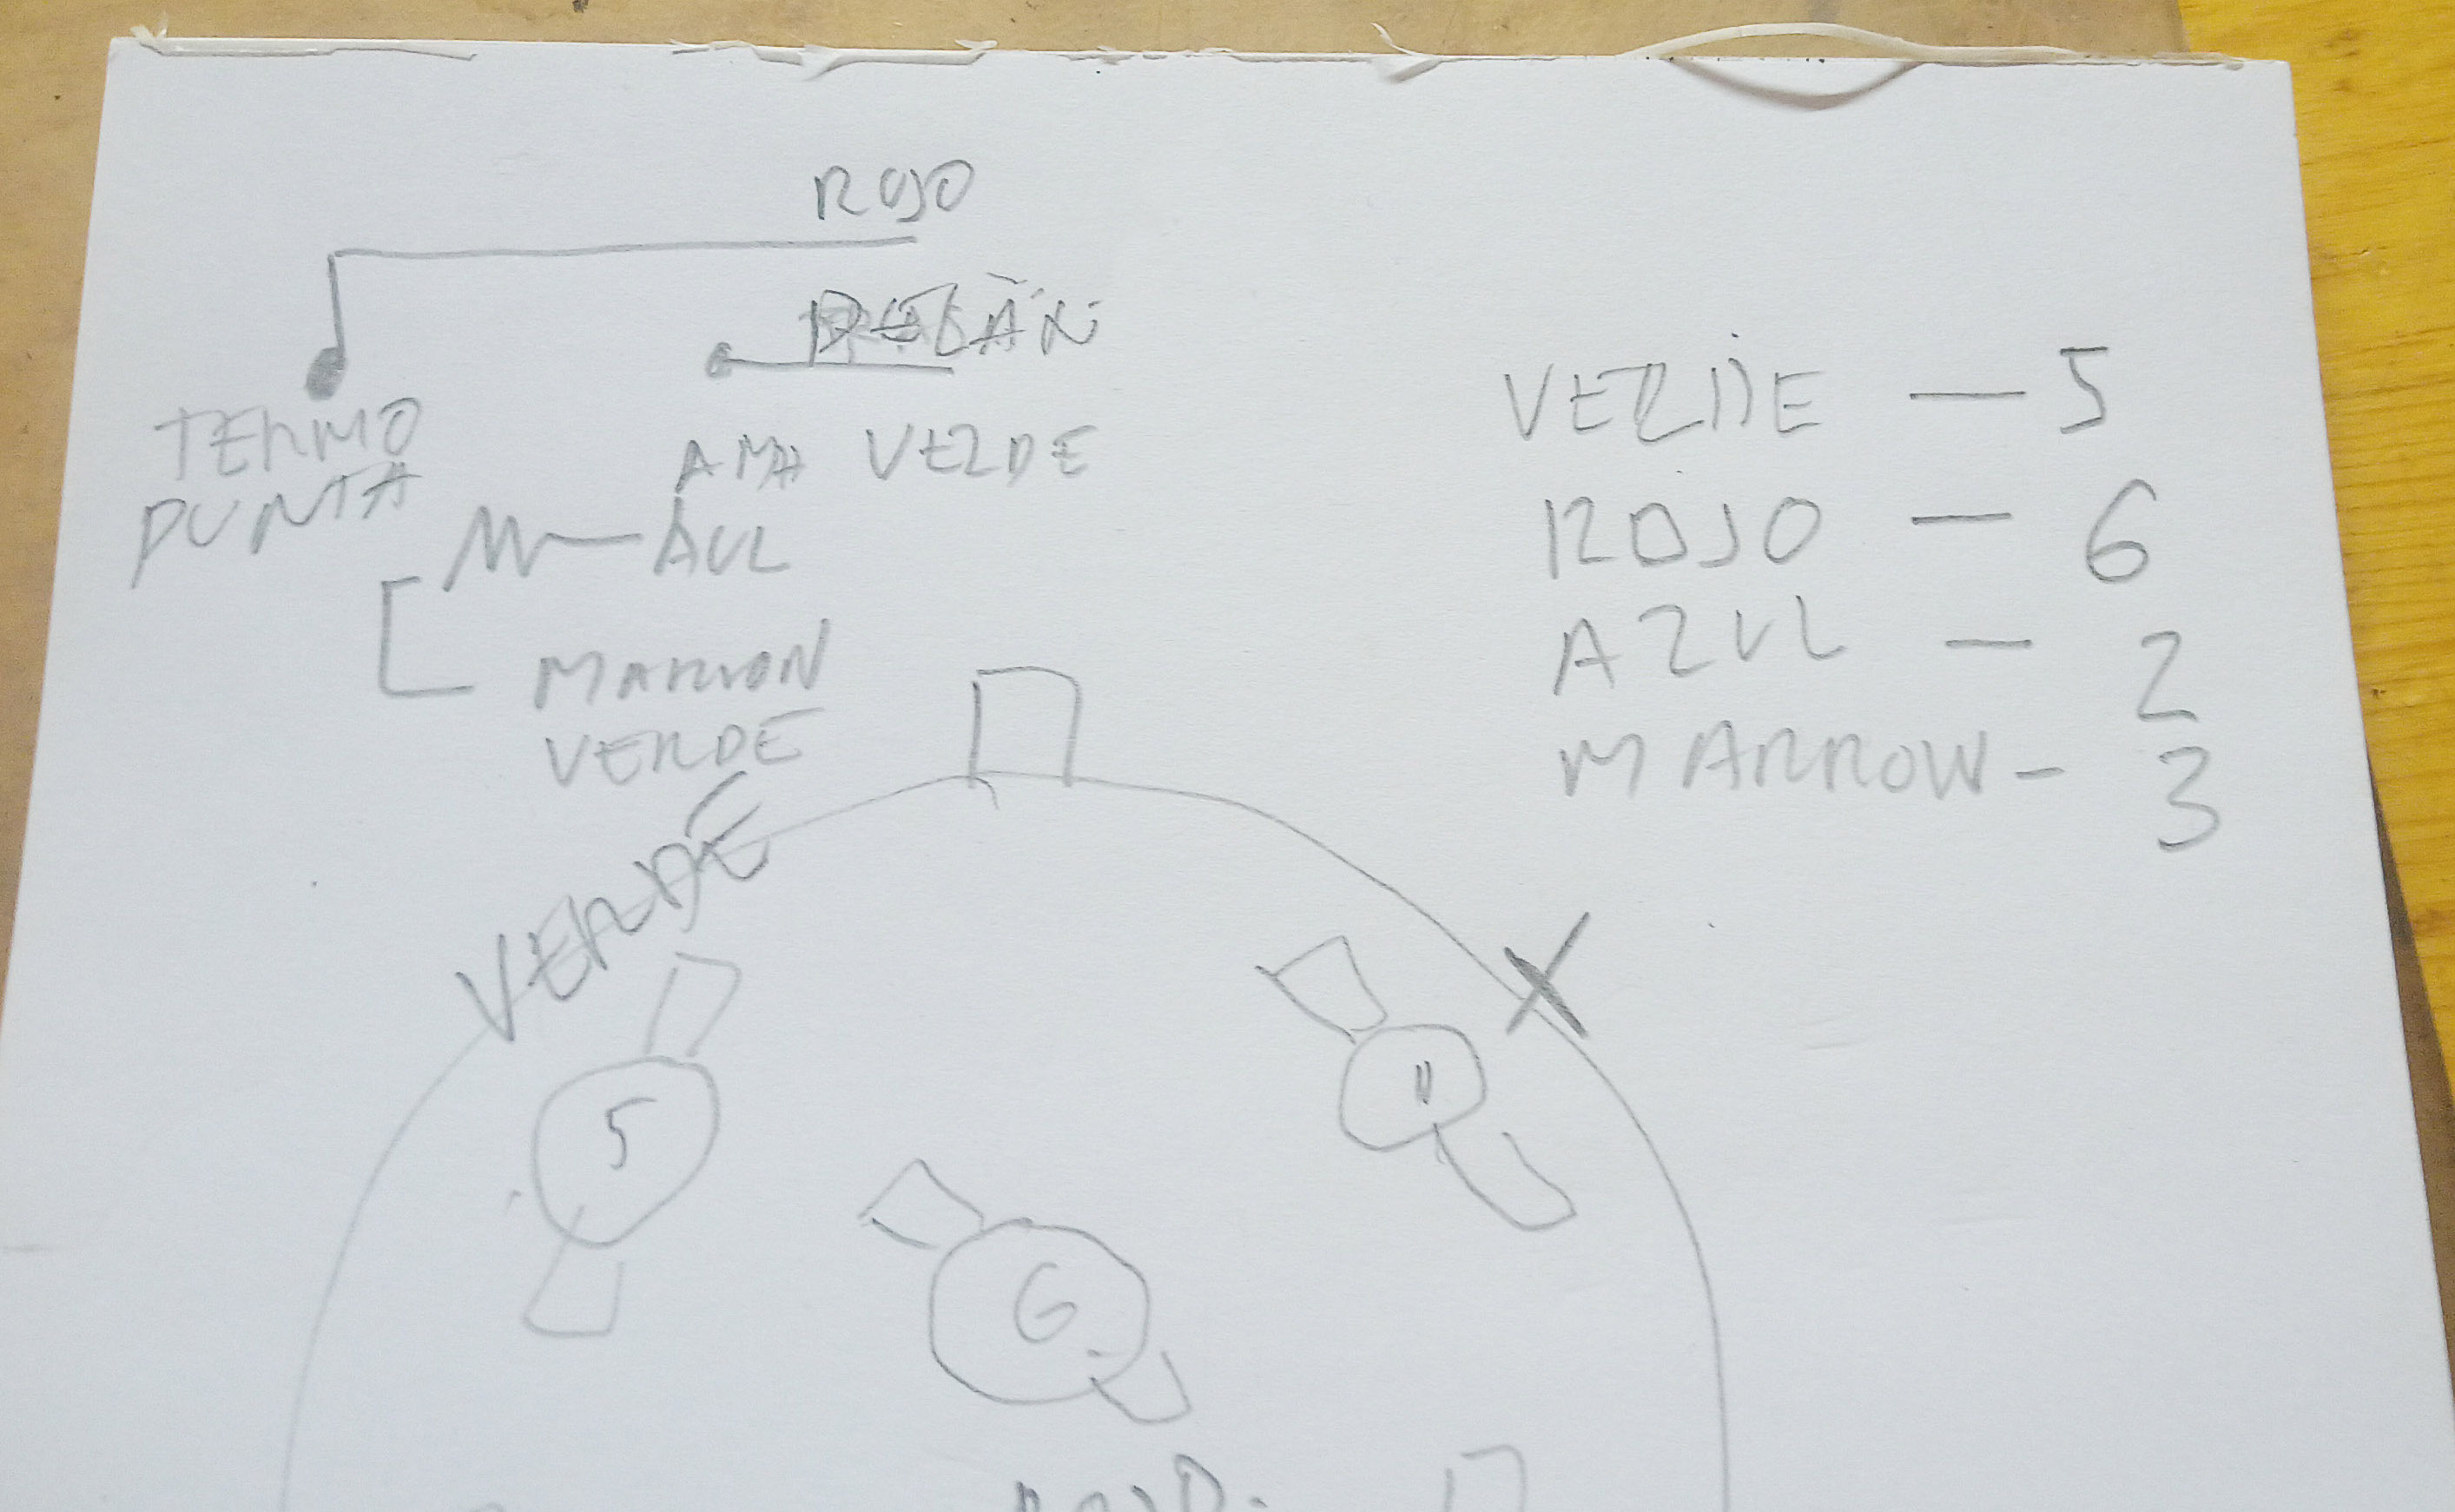 ROJO
TERMO
PUNTA
AMA VERDE
AUL
MARRON
VERDE
VERDE — 5
ROJO — 6
AZUL — 2
MARROW — 3
VERDE
5
6
11
ROJO.